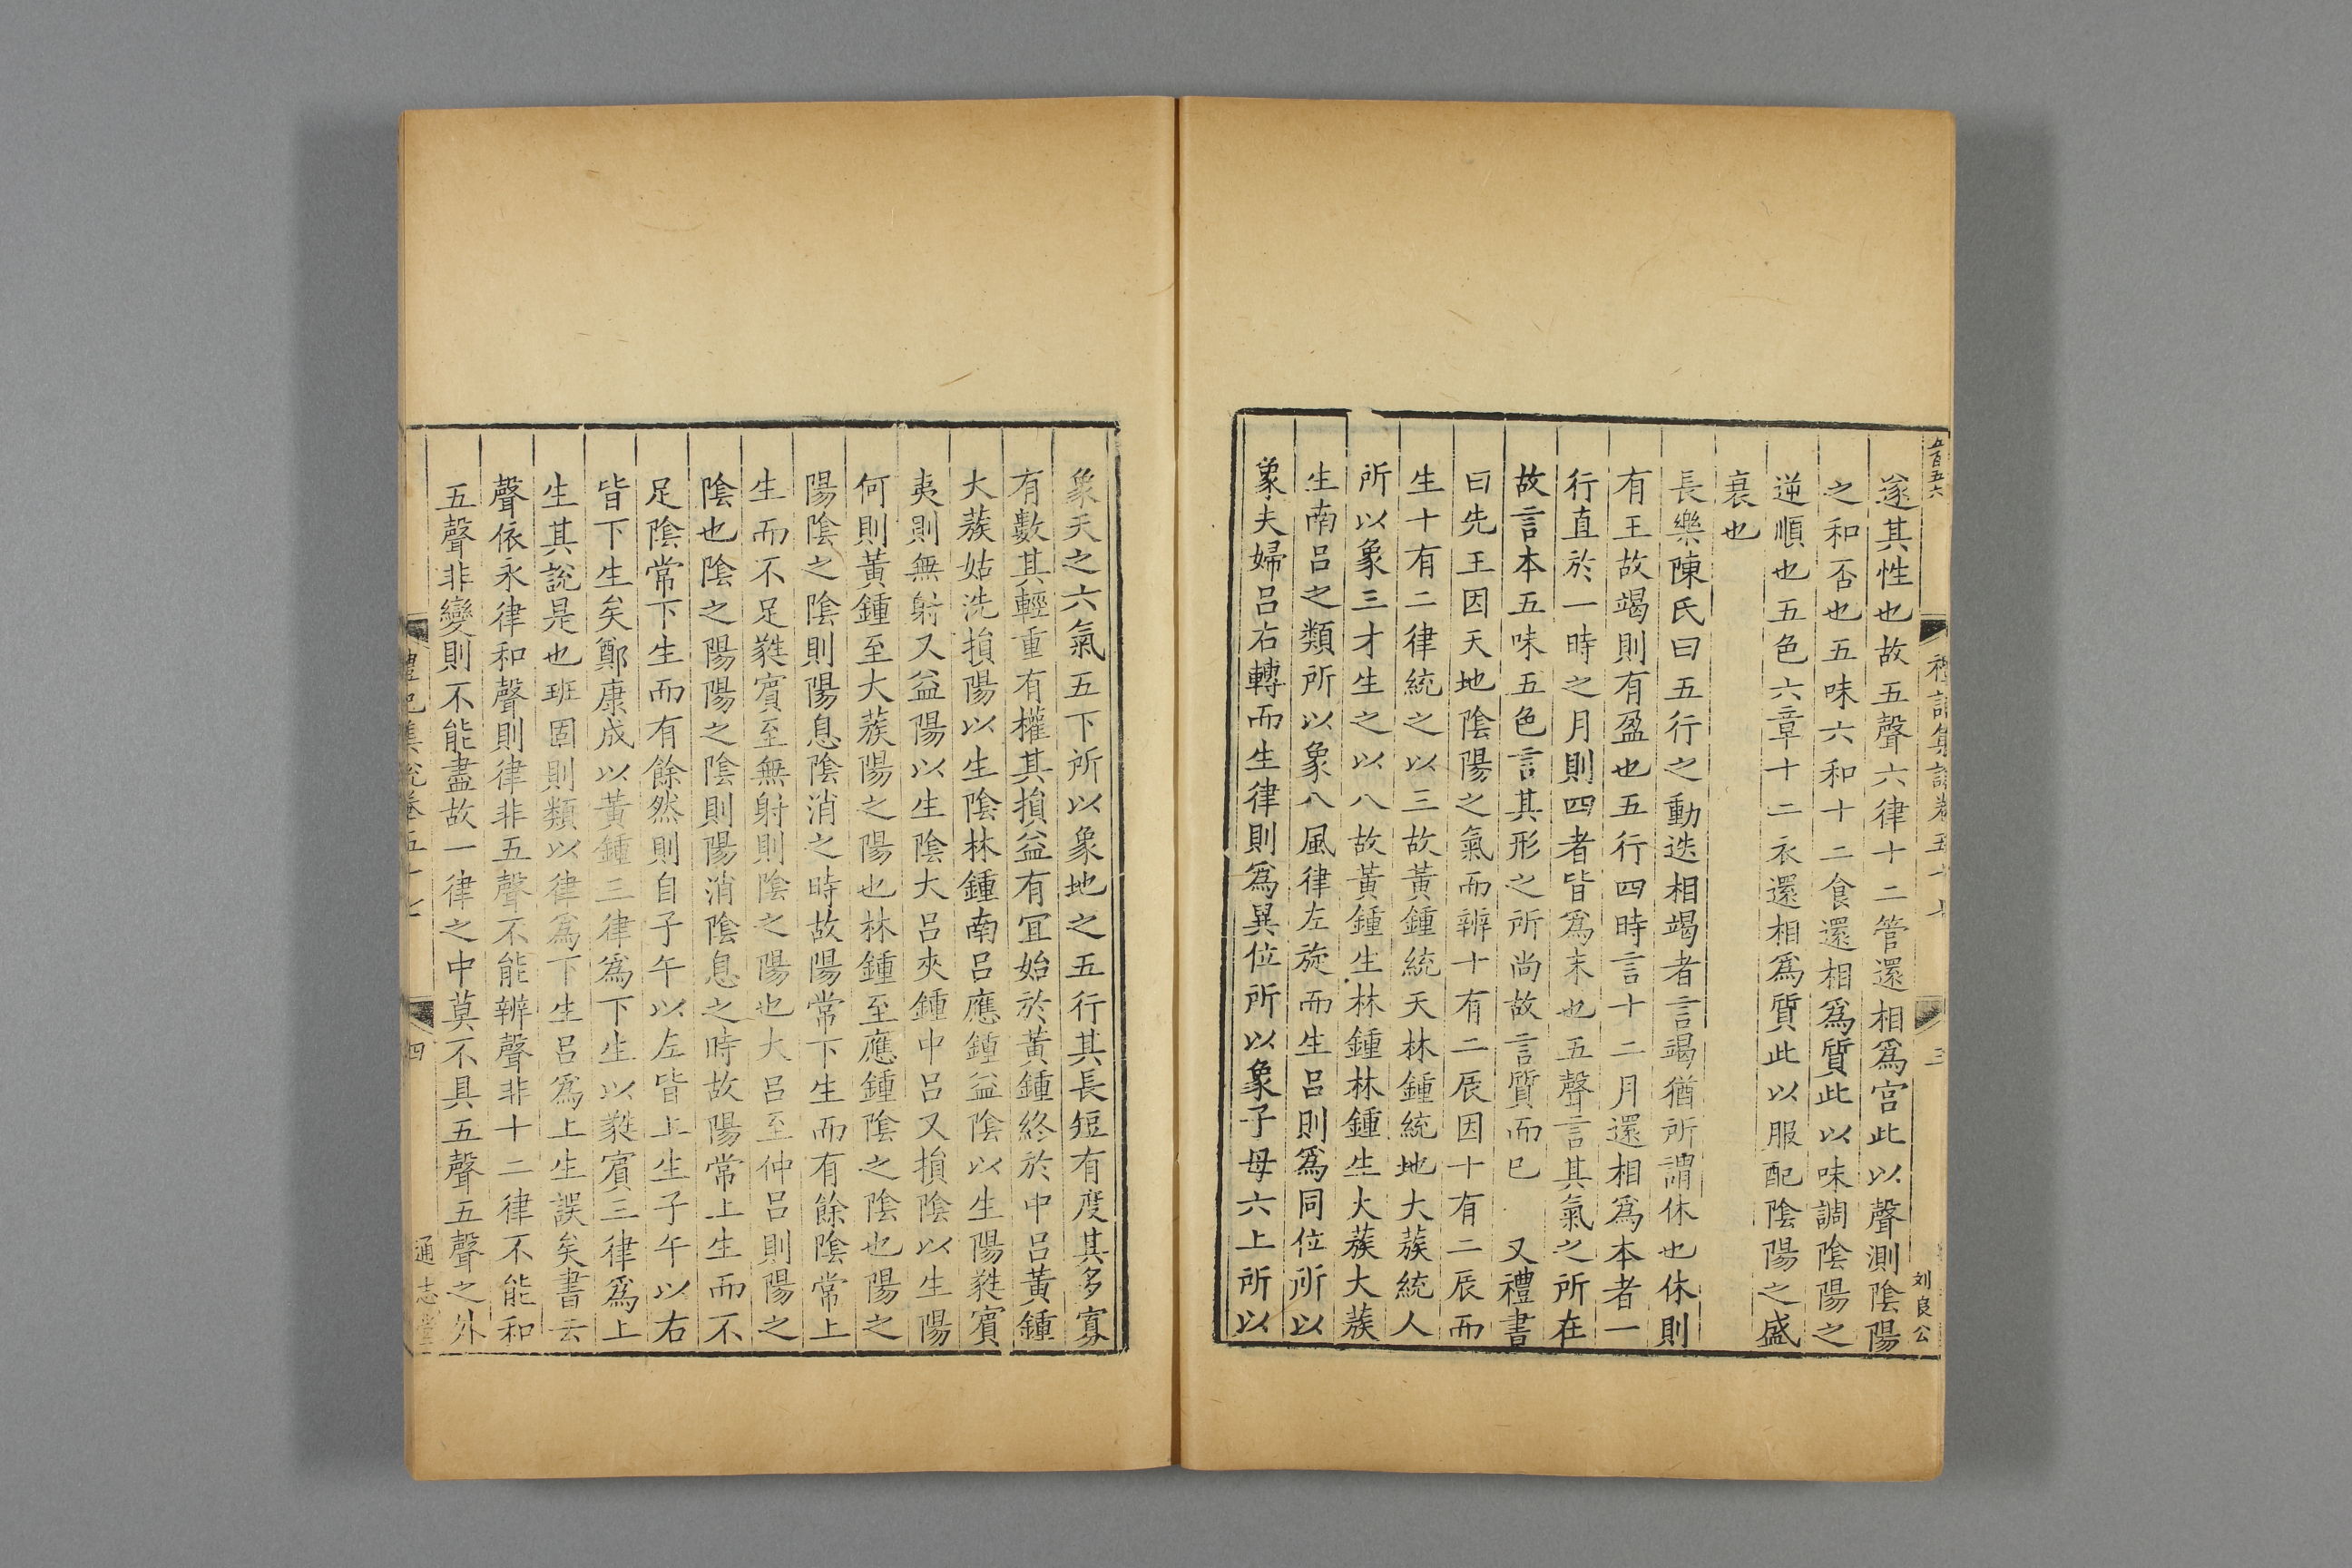 五百五六
禮記集說卷五十七
三
刘良公
遂其性也故五聲六律十二管還相爲宮此以聲測陰陽
之和否也五味六和十二食還相爲質此以味調陰陽之
逆順也五色六章十二衣還相爲質此以服配陰陽之盛
衰也
長樂陳氏曰五行之動迭相竭者言竭猶所謂休也休則
有王故竭則有盈也五行四時言十二月還相爲本者一
行直於一時之月則四者皆爲末也五聲言其氣之所在
故言本五味五色言其形之所尚故言質而已 又禮書
曰先王因天地陰陽之氣而辨十有二辰因十有二辰而
生十有二律統之以三故黃鍾統天林鍾統地大蔟統人
所以象三才生之以八故黃鍾生林鍾林鍾生大蔟大蔟
生南呂之類所以象八風律左旋而生呂則爲同位所以
象夫婦呂右轉而生律則爲異位所以象子母六上所以
象天之六氣五下所以象地之五行其長短有度其多寡
有數其輕重有權其損益有宜始於黃鍾終於中呂黃鍾
大蔟姑洗損陽以生陰林鍾南呂應鍾益陰以生陽蕤賓
夷則無射又益陽以生陰大呂夾鍾中呂又損陰以生陽
何則黃鍾至大蔟陽之陽也林鍾至應鍾陰之陰也陽之
陽陰之陰則陽息陰消之時故陽常下生而有餘陰常上
生而不足蕤賓至無射則陰之陽也大呂至仲呂則陽之
陰也陰之陽陽之陰則陽消陰息之時故陽常上生而不
足陰常下生而有餘然則自子午以左皆上生子午以右
皆下生矣鄭康成以黃鍾三律爲下生以蕤賓三律爲上
生其說是也班固則類以律爲下生呂爲上生誤矣書云
聲依永律和聲則律非五聲不能辨聲非十二律不能和
五聲非變則不能盡故一律之中莫不具五聲五聲之外
禮記集說卷五十七
四
通志堂